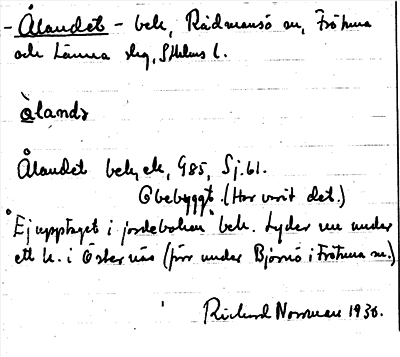 - Ålandet - beb., Rådmansö sn, Frötuna
och Länna skg, Sthlms l.
àlandə
Ålandet beb, ek, G85, Sj.61.
Obebyggt. (Har varit det.)
"Ej upptaget i jordeboken" beb. Lyder nu under
ett h. i Östernäs (förr under Björnö i Frötuna sn.)
Richard Norrman 1930.